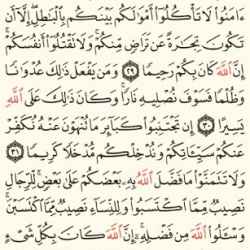 ءَامَنُوا۟ لَا تَأْكُلُوٓا۟ أَمْوَٰلَكُم بَيْنَكُم بِٱلْبَٰطِلِ إِلَّآ أَن
تَكُونَ تِجَٰرَةً عَن تَرَاضٍ مِّنكُمْ ۚ وَلَا تَقْتُلُوٓا۟ أَنفُسَكُمْ ۚ
إِنَّ ٱللَّهَ كَانَ بِكُمْ رَحِيمًا ٢٩ وَمَن يَفْعَلْ ذَٰلِكَ عُدْوَٰنًا
وَظُلْمًا فَسَوْفَ نُصْلِيهِ نَارًا ۚ وَكَانَ ذَٰلِكَ عَلَى ٱللَّهِ
يَسِيرًا ٣٠ إِن تَجْتَنِبُوا۟ كَبَآئِرَ مَا تُنْهَوْنَ عَنْهُ نُكَفِّرْ
عَنكُمْ سَيِّـَٔاتِكُمْ وَنُدْخِلْكُم مُّدْخَلًا كَرِيمًا ٣١
وَلَا تَتَمَنَّوْا۟ مَا فَضَّلَ ٱللَّهُ بِهِۦ بَعْضَكُمْ عَلَىٰ بَعْضٍ ۚ لِّلرِّجَالِ
نَصِيبٌ مِّمَّا ٱكْتَسَبُوا۟ ۖ وَلِلنِّسَآءِ نَصِيبٌ مِّمَّا ٱكْتَسَبْنَ ۚ
وَسْـَٔلُوا۟ ٱللَّهَ مِن فَضْلِهِۦٓ ۗ إِنَّ ٱللَّهَ كَانَ بِكُلِّ شَىْءٍ